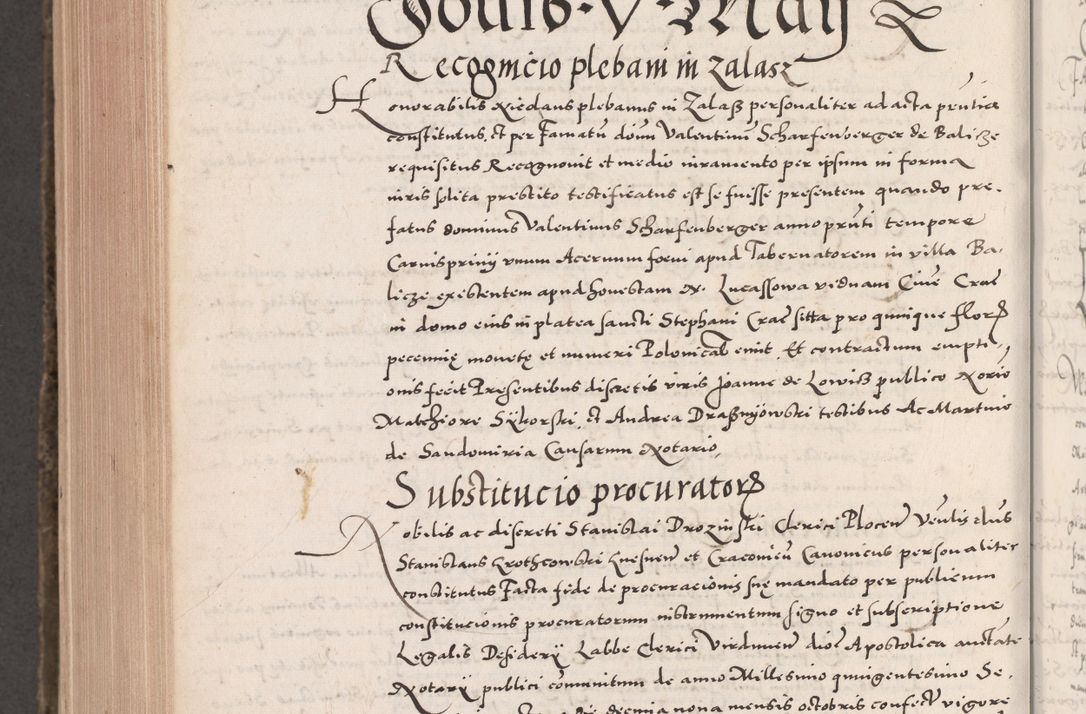 Jouis · V · Maij
Recognicio plebani in Zalasz
Honorabilis Nicolaus plebanus in Zalasz personaliter ad acta pr̄ntia
constitutus, Et per Famatū dōm̄ Valentinū Scharfenberger de Balicze
requisitus Recognouit et medio iuramento per ipsum in forma
iuris solita prestito testificatus est se fuisse presentem quando pre-
fatus dominus Valentinus Scharfenberger anno pr̄nti tempore
Carnispriuij vnum Aceruum foeni apud Tabernatorem in villa Ba-
licze existentem apud honestam N. Lucassowa viduam Ciuē Crac
in domo eius in platea sancti Stephani Crac sitta pro quinque flor
pecunię monetę et numeri Polonical emit. Et contractum empti-
onis fecit Presentibus discretis viris Joanne de Lowicz publico Norio
Malchiore Sykorski, Et Andrea Draszniowski testibus Ac Martino
de Sandomiria Causarum Notario,
Substitucio procurator
Nobilis ac discreti Stanislai Drozinski Clerici Plocen Venlis dn̄s
Stanislaus Krothcowski Gnesnen et Cracouień Canonicus personaliter
constitutus Facta fide de procuracionis suę mandato per publicum
constitucionis procuratorum instrumentum signo et subscriptione
Legalis Desiderij Labbe Clerici Virdunen dioc Apostolica auctate
Notarij publici com̄unitum de anno Millesimo quingentesimo Se-
decima nona mensis octobris confect vigore